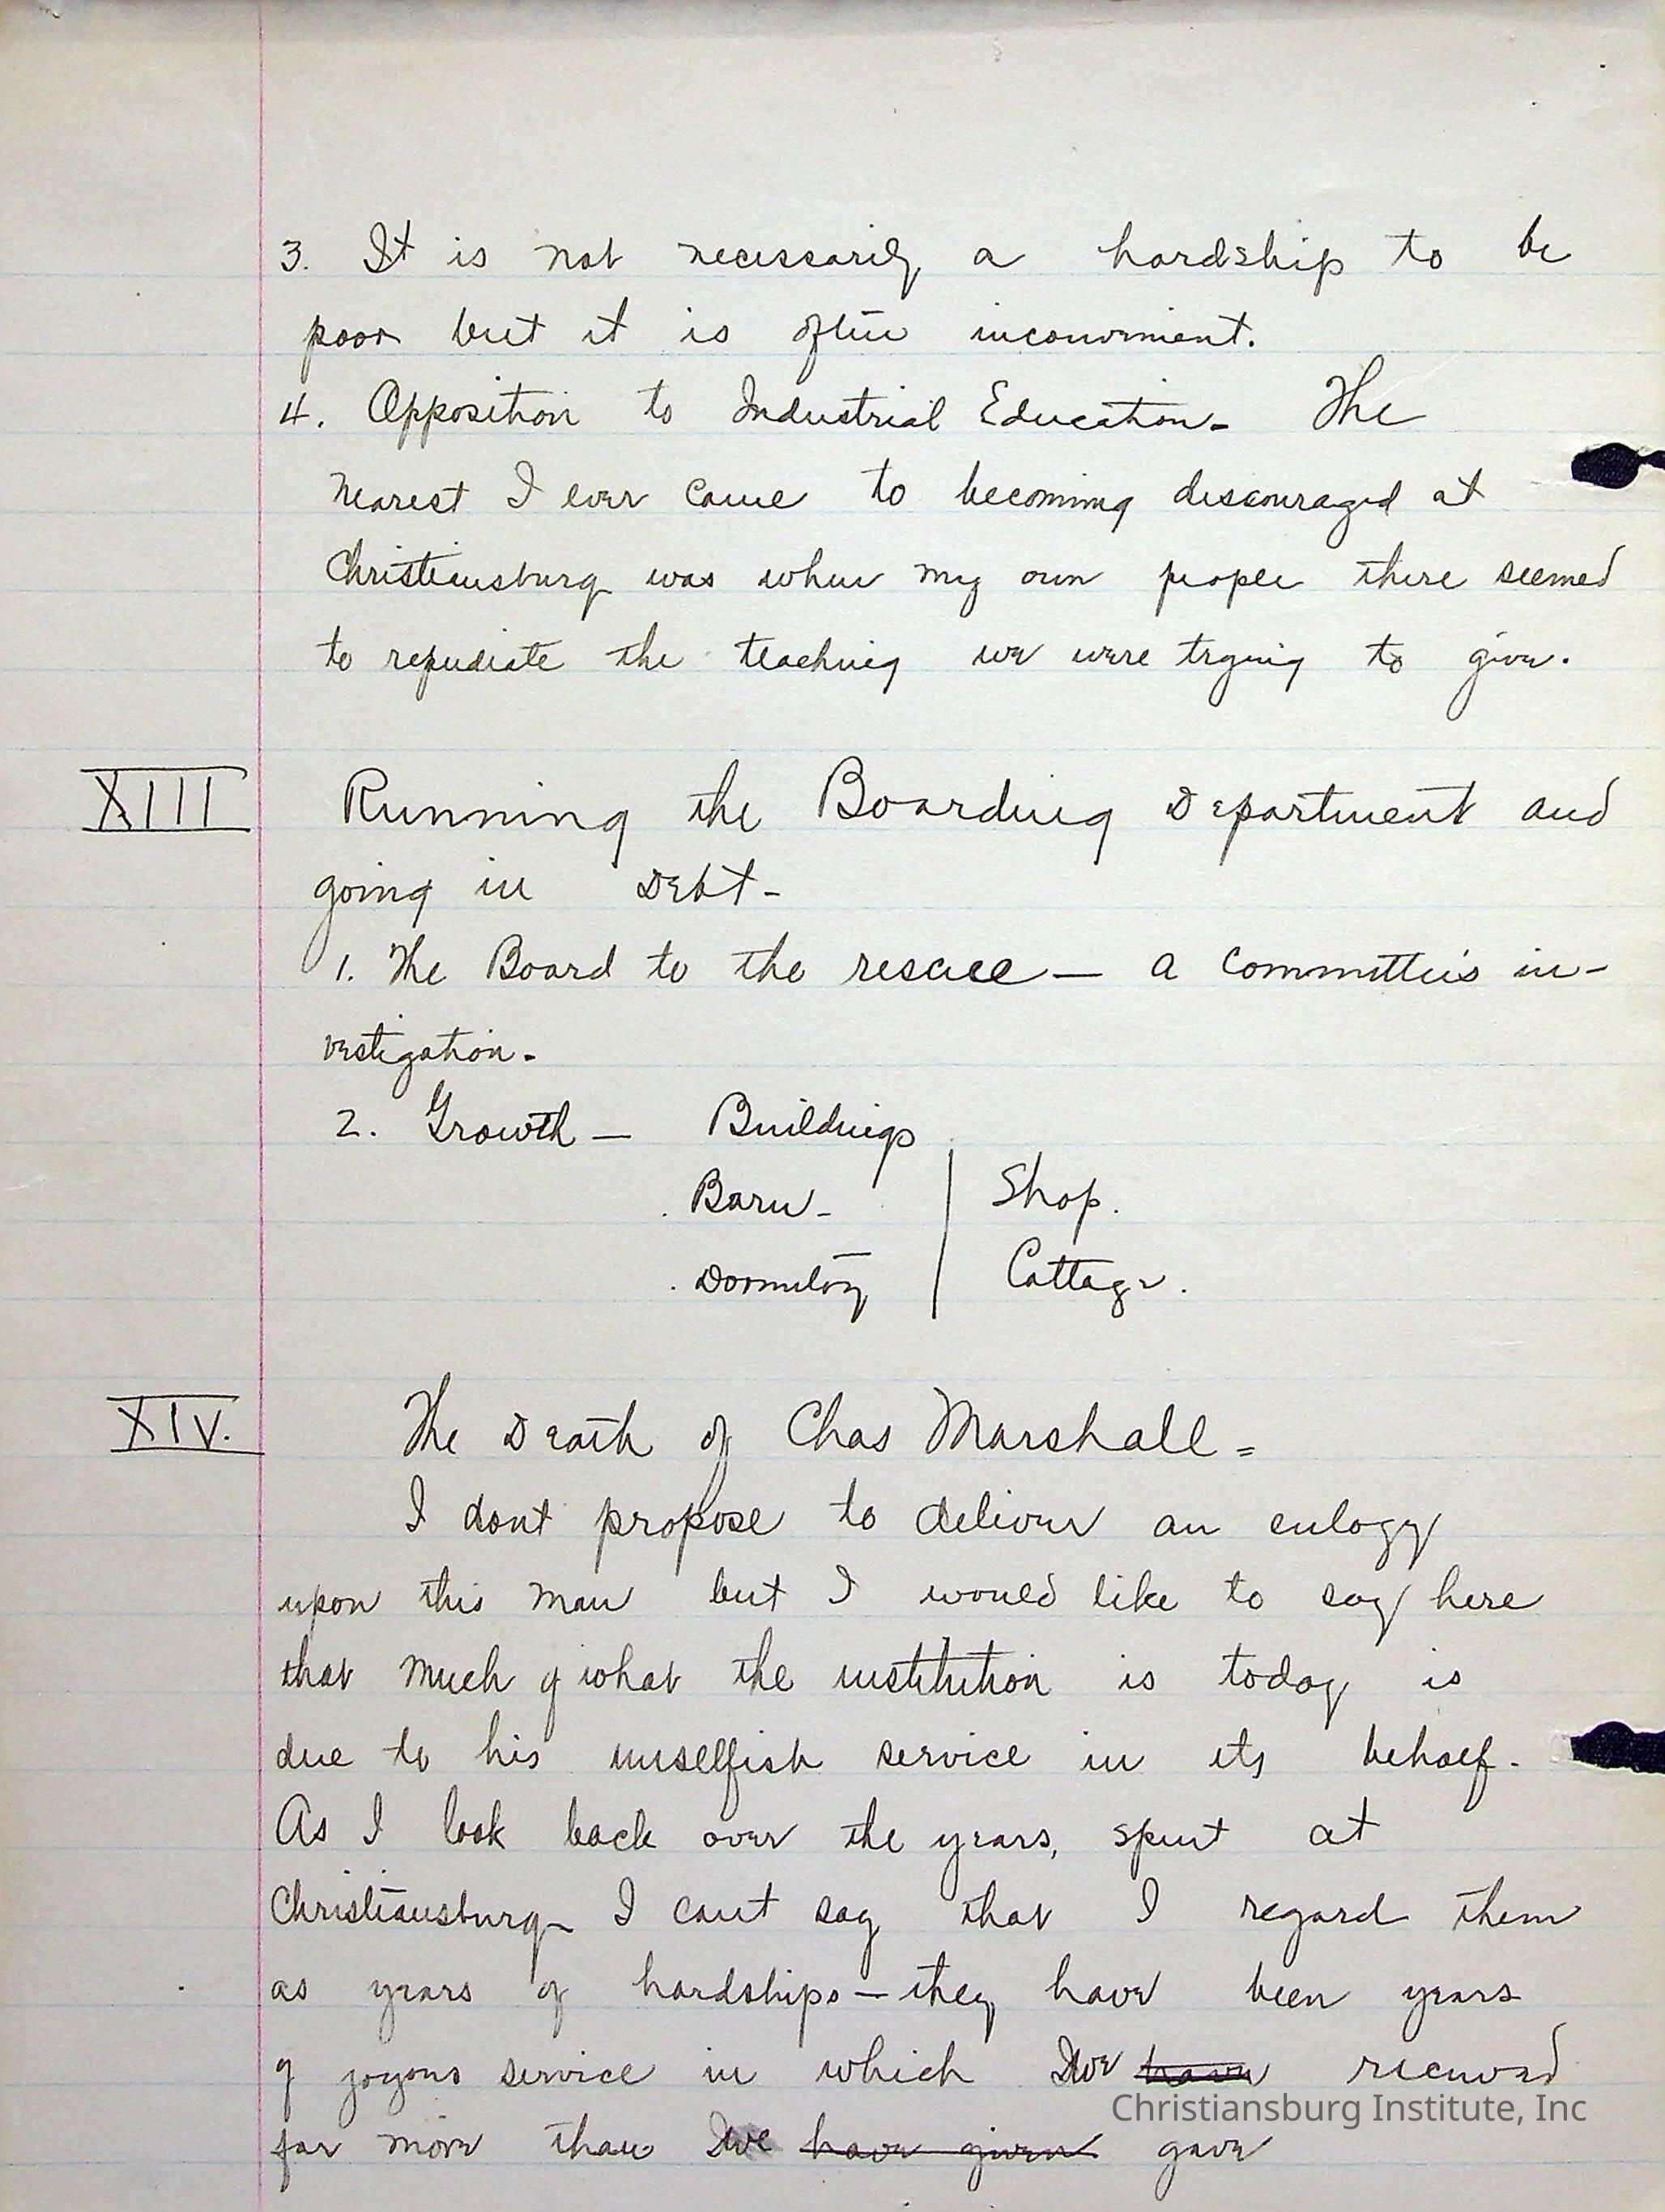 3. It is not necessarily a hardship to be
poor but it is often inconvenient.
4. Opposition to Industrial Education - The
nearest I ever came to becoming discouraged at
Christiansburg was when my own people there seemed
to repudiate the teaching we were trying to give.
XIII Running the Boarding Department and
going in Debt -
1. The Board to the rescue — a committee's in-
vestigation.
2. Growth — Buildings
Barn - | Shop.
Dormitory | Cottage.
XIV. The Death of Chas Marshall =
I dont propose to deliver an eulogy
upon this man but I would like to say here
that much of what the institution is today is
due to his unselfish service in its behalf.
As I look back over the years, spent at
Christiansburg - I cant say that I regard them
as years of hardships — they have been years
of joyous service in which We have received
far more than We have given gave
Christiansburg Institute, Inc